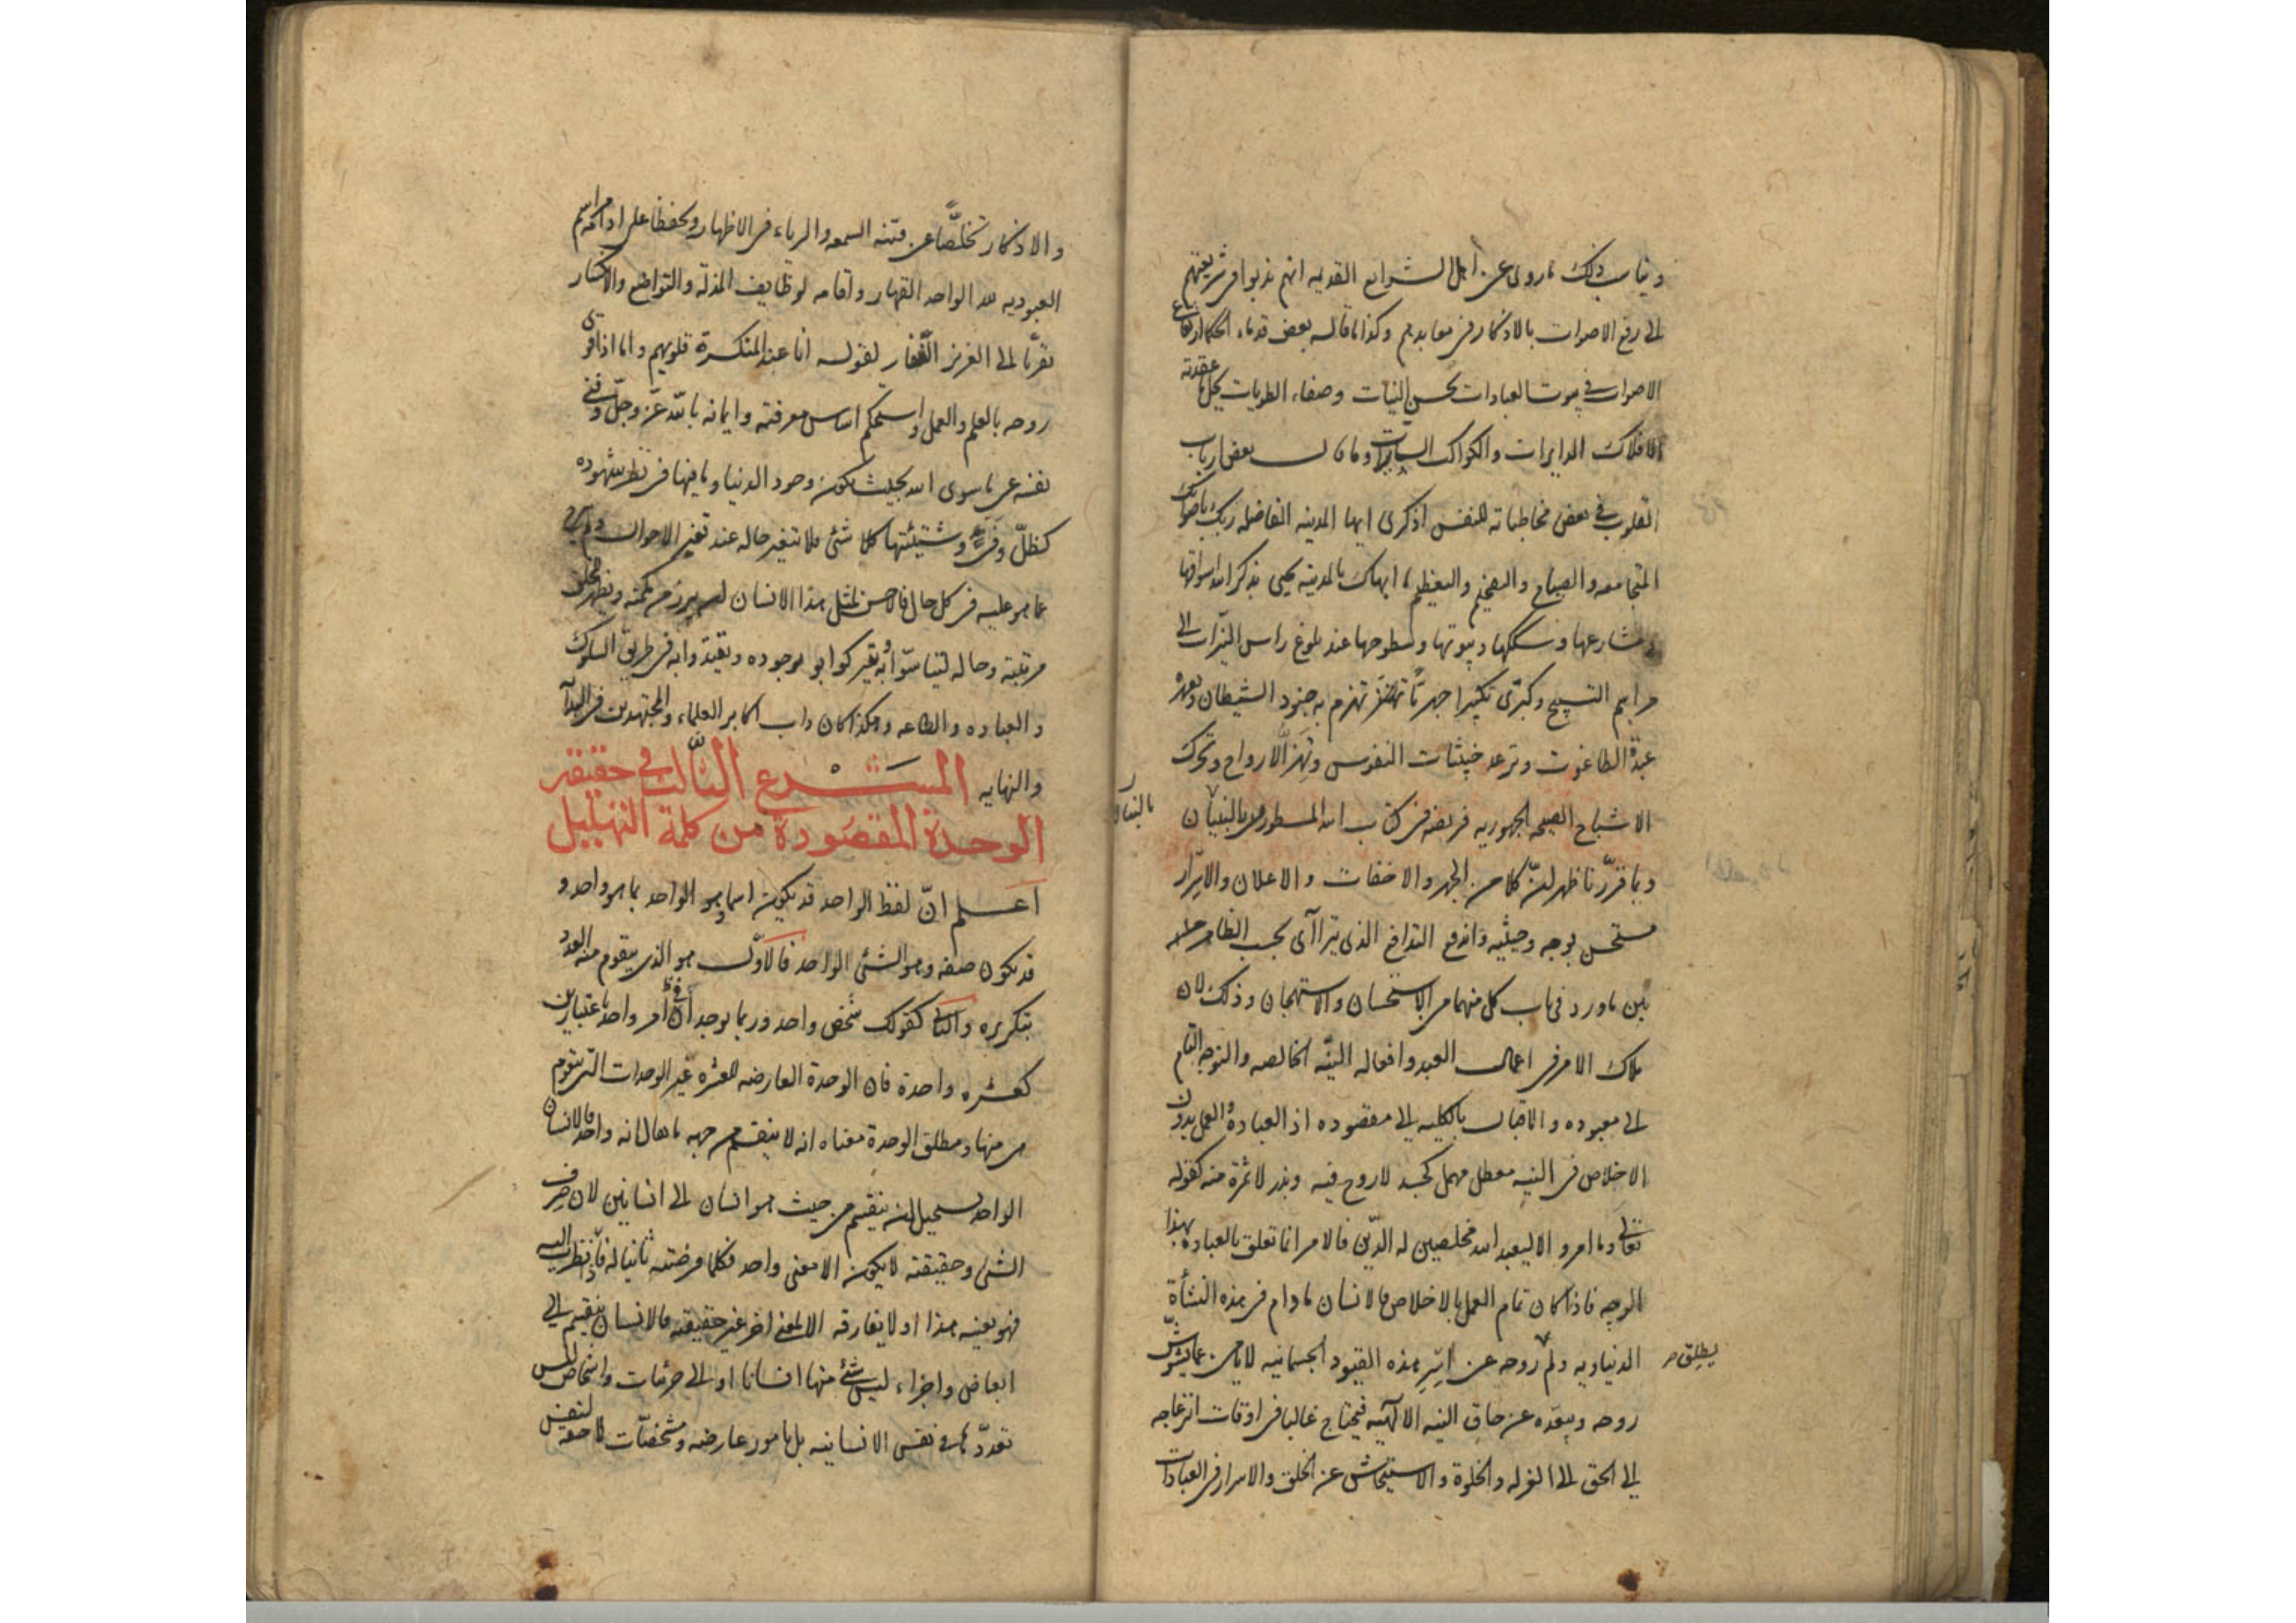 ويناسب ذلك ما روى عن اهل الشرايع القديمه انهم ندبوا فى شريعتهم
الى رفع الاصوات بالاذكار فى معابدهم وكذا ما قاله بعض قدماء الحكما ارتفاع
الاصوات فى بيوت العبادات بحسن النيات وصفاء الطويات يحل ما عقدته
الافلاك الدايرات والكواكب السايرات وقال بعض ارباب
القلوب فى بعض مخاطباته للنفس اذكرى ايتها المدينه الفاضله ربك باصوات
المجامعه والصياح والتفخيم والتعظيم بالمدينه يحيى بذكر الله اسواقها
ومشارعها وسككها وبيوتها وسطوحها عند بلوغ راس النيرات الى
مراسم التسبيح وكبرى تكبيرا جهريا تهتز تهزم به جنود الشيطان
عبدة الطاغوت وترعد خبيثات النفوس وتهز الارواح وتحرك
الاشباح الصيحه الجمهوريه فريضه فى كتاب الله المسطور بالبنيان
وبما قررنا ظهر ان كلا من الجهر والاخفات والاعلان والاسرار
مستحسن بوجه وحيثيه واندفع التدافع الذى يترااى بحسب الظاهر
بين ما ورد فى باب كل منهما من الاستحسان والاستهجان وذلك لان
ملاك الامر فى اعمال العبد وافعاله النيّه الخالصه والتوجه التام
الى معبوده والاقبال بالكليه الى مقصوده اذ العبادة والعمل بدون
الاخلاص فى النيه معطل مهمل كجسد لا روح فيه وبذر لا ثمرة منه كقوله
تعالى وما امروا الا ليعبدوا الله مخلصين له الدّين فالامر انما تعلق بالعباده بهذا
الوجه فاذا كان تمام العمل بالاخلاص فالانسان ما دام فى هذه النشأة
الدنياويه ولم يطلق روحه عن اسر هذه القيود الجسمانيه لا يأمن عما يشوّش
روحه ويبعده عن حاق النيه الالهيّه فيحتاج غالبا فى اوقات انزعاجه
الى الحق الى العزله والخلوة والاستيحاش عن الخلق والاسرار فى العبادات
والاذكار تخلّصاً عن فتنه السمعه والرياء فى الاظهار وتحفظا على اداء مراسم
العبوديه لله الواحد القهار واقامه لوظايف المذلّه والتواضع والانكسار
تقرّبا الى العزيز الغفار لقوله انا عند المنكسرة قلوبهم واما اذا قوى
روحه بالعلم والعمل واستحكم اساس معرفته وايمانه بالله عزّ وجلّ وفنى
نفسه عن ما سوى الله بحيث يكون وجود الدنيا وما فيها فى نظر شهوده
كظلّ وفىء وشيئيتها كلا شئ فلا تتغير حاله عند تغير الاحوال
عما هو عليه فى كل حال فالاحسن لمثل هذا الانسان ان يبرز من مكمنه ويظهر للخلق
مرتبته وحاله ليتأسّوا به بوجوده ويقتدوا به فى طريق السلوك
والعباده والطاعه وهكذا كان داب اكابر العلماء والمجتهدين فى البدآ
والنهايه المشرع الثالث فى حقيقة
الوحدة المقصودة من كلمة التهليل
اعلم انّ لفظ الواحد قد يكون اسما وهو الواحد بما هو واحد و
قد يكون صفه وهو الشئ الواحد فالاوّل هو الذى يتقوم منه العدد
بتكريره والثانى كقولك شخص واحد وربما يوجدان فى امر واحد باعتبارين
كعشره واحدة فان الوحدة العارضه للعشره غير الوحدات التى يتقوم
هى منها ومطلق الوحدة معناه انه لا ينقسم من جهه ما يقال انه واحد فالانسان
الواحد يستحيل ان ينقسم من حيث هو انسان الى انسانين لان صرف
الشئ وحقيقته لا يكون الا معنى واحد فكلما فرضته ثانيا له فاذا نظرت اليه
فهو بعينه هذا اذ لا يفارقه الا لمعنى اخر غير حقيقته فالانسان ينقسم الى
ابعاض واجزاء ليس شئ منها انسانا او الى جزئيات واشخاص ليس
تعددها فى نفس الانسانيه بل بامور عارضه ومشخصّات لاحقه